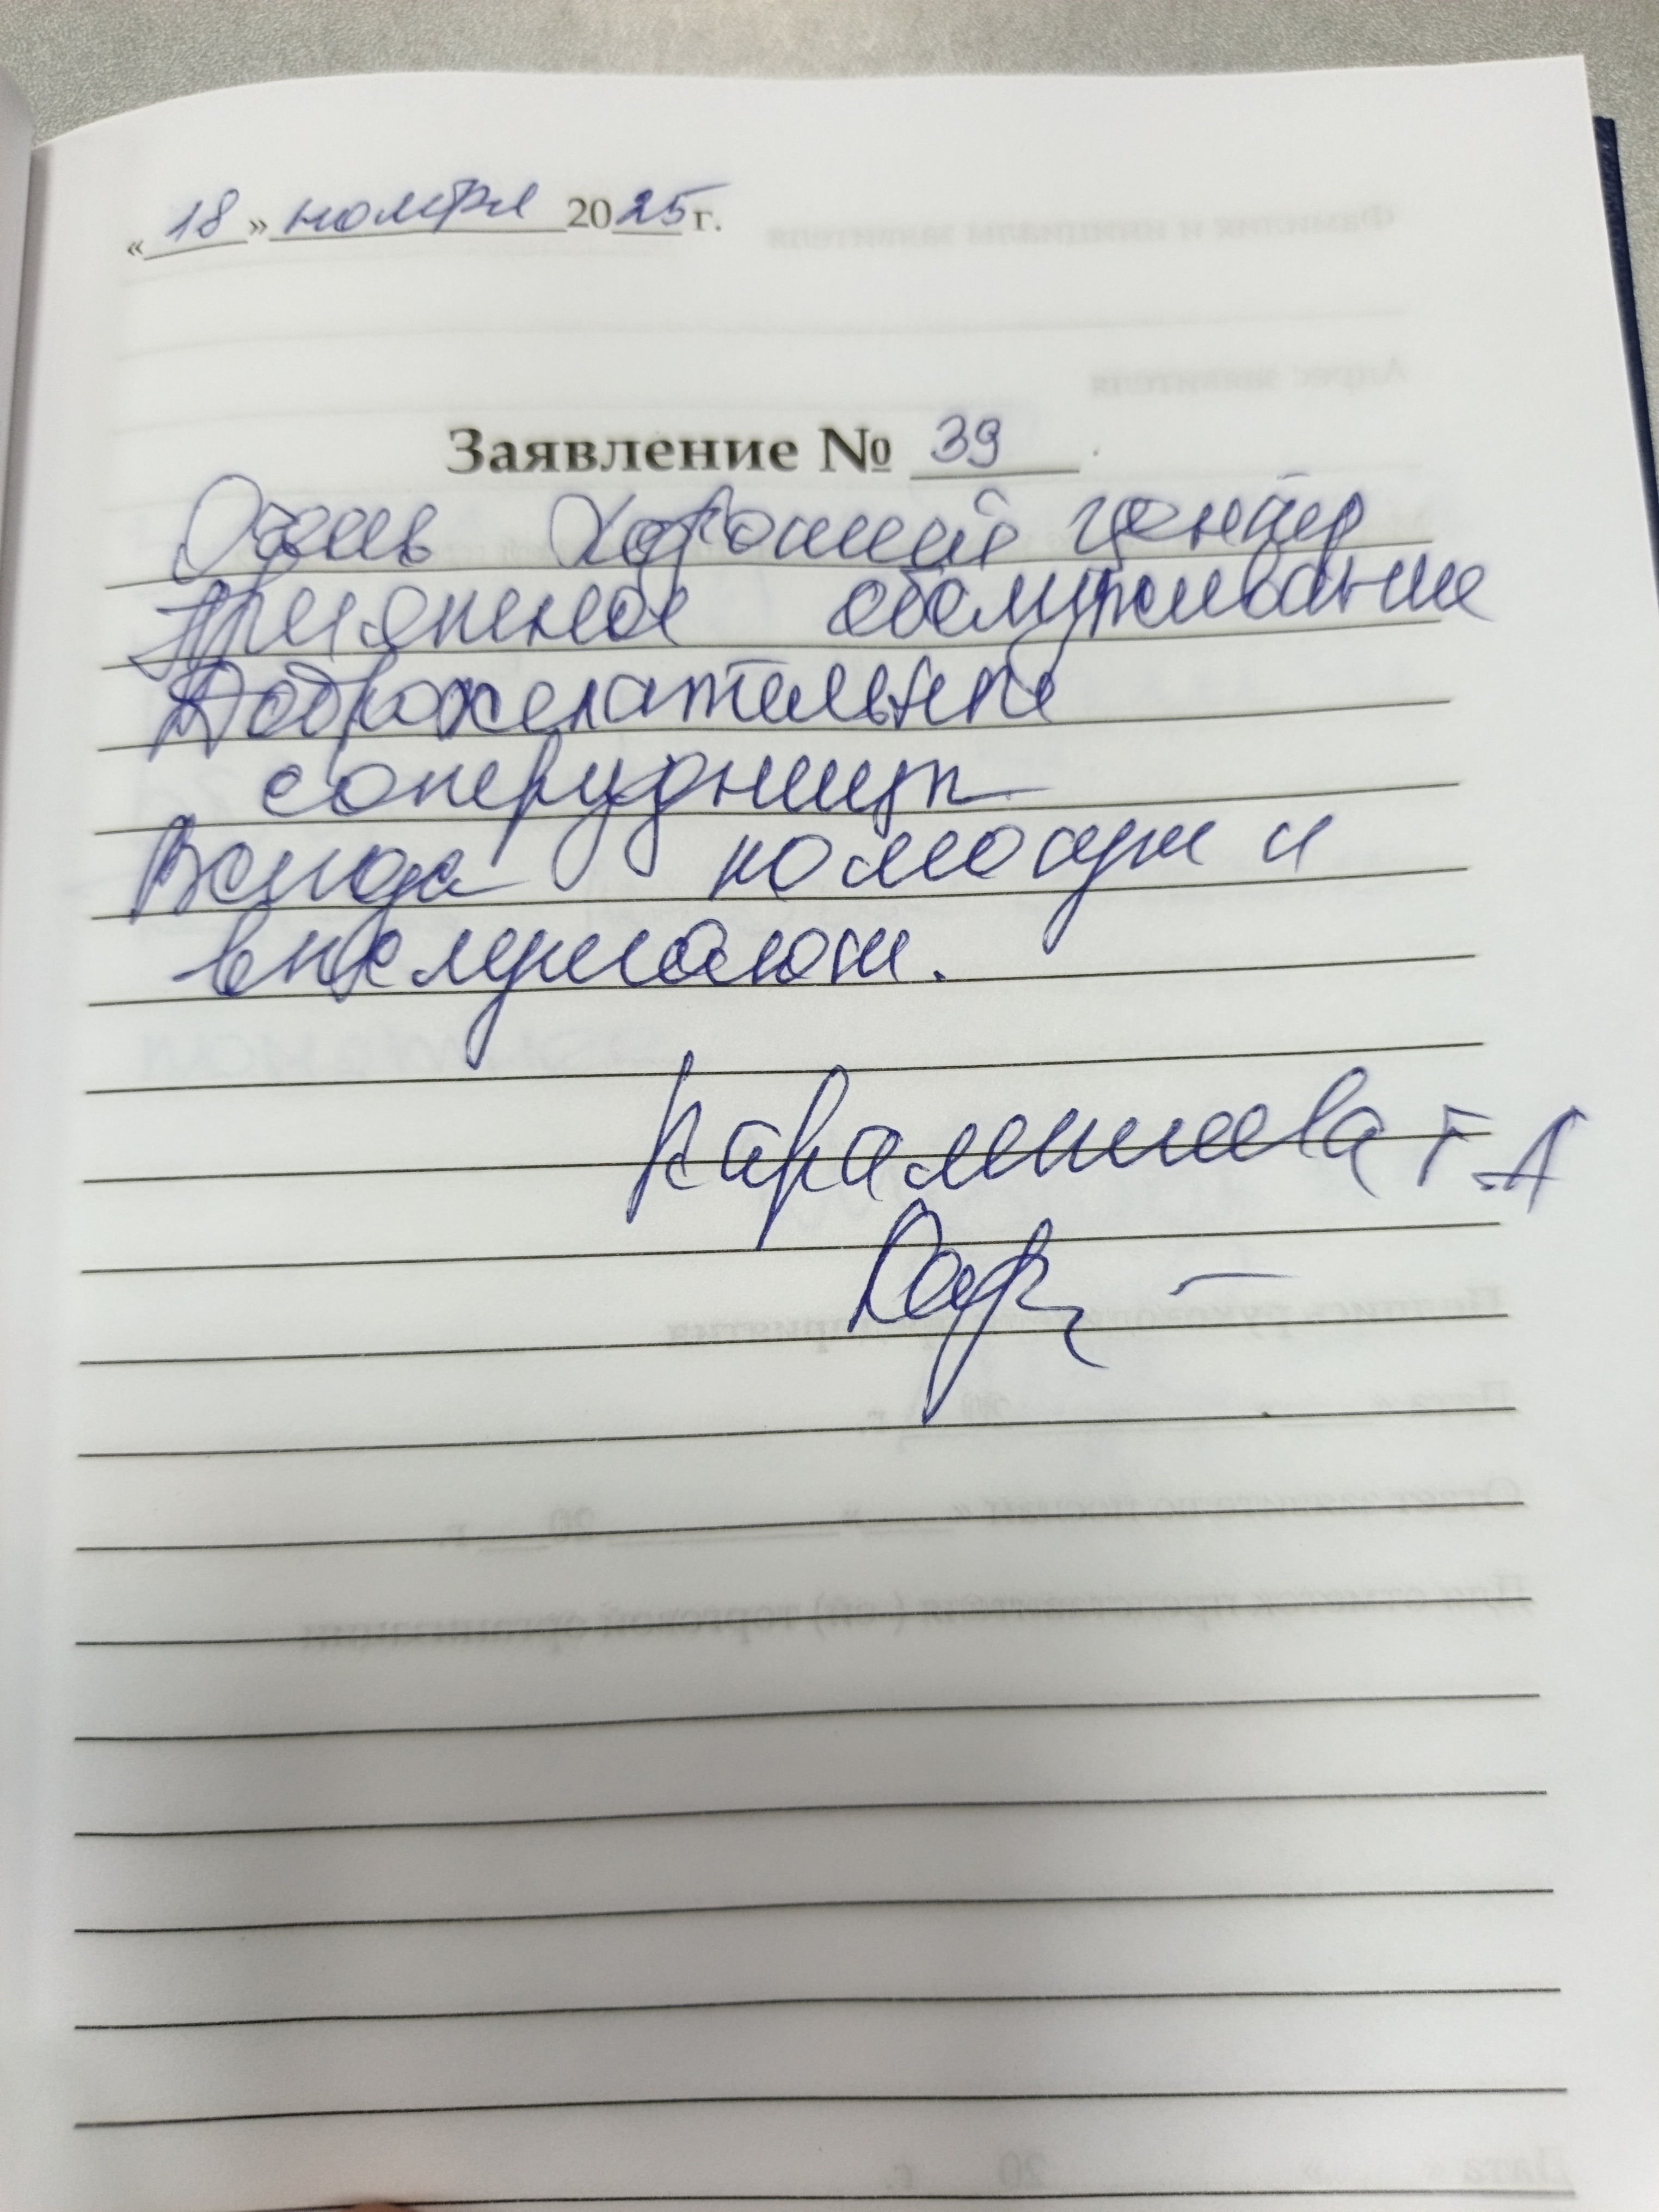 « 18 » ноября 2025 г.
Заявление № 39
Очень хороший центр
Приятное обслуживание
Доброжелательные
сотрудницы
Всегда помогут и
внслушают.
Т.А